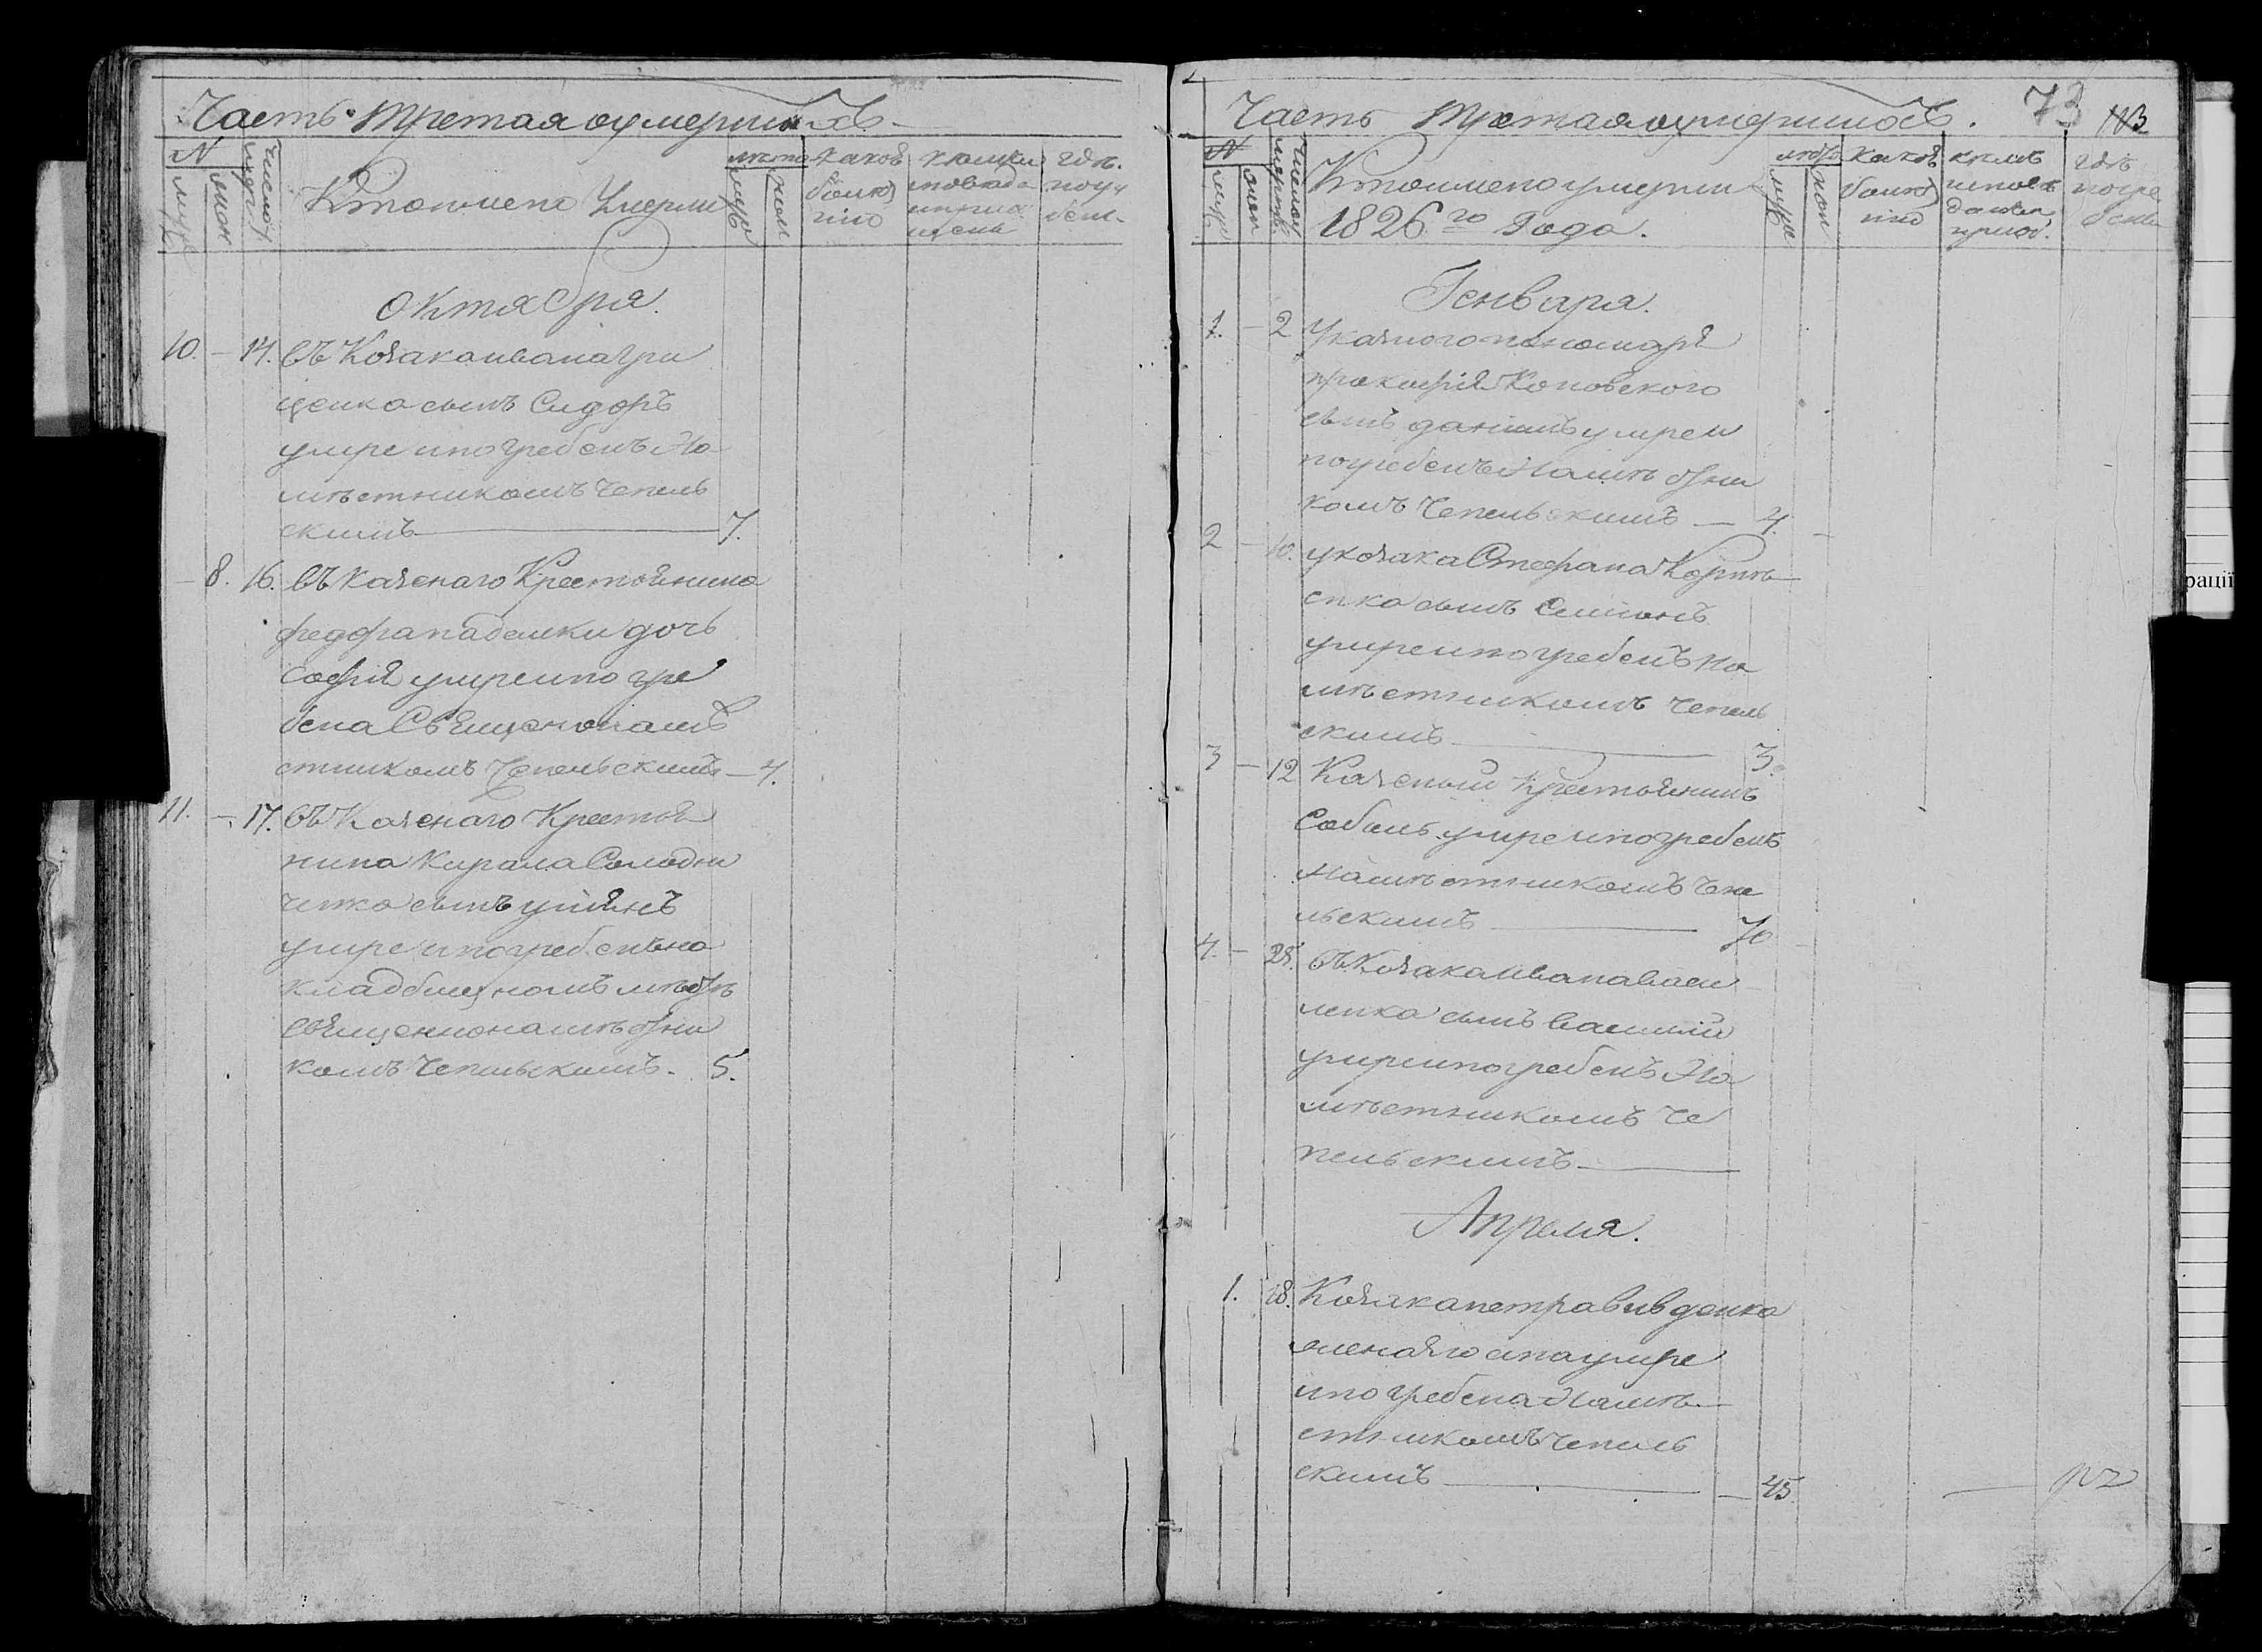 Часть третая оумершихъ
N
муж
жен
число мерт.
Кто имено умерли
лѣта
муж
жен
какою
болез
нію
октября.
10. – 14. Въ Козака ивана гри
ценка сынъ Сидоръ
умре и погребенъ На
мѣстникомъ Чепель
скимъ 7.
– 8. 16. Въ казенаго Крестоянина
федора пабелки дочъ
Софія умре и погре
бена Священонамѣ
стникомъ Чепельскимъ – 4.
11. – 17. Въ Казенаго Крестоя
нина Кирала Солодни
ченка сынъ
умре и погребенъ на
кладбищномъ мѣстѣ
Священнонамѣстни
комъ Чепельскимъ. 5.
Часть третая оумершихъ.
73
113
N
муж
жен
число мерт.
Кто имено умерли
1826го Года.
лѣта
муж
жен
какою
болез
нію
кѣмъ
исповѣ
гдѣ
погре
бены
Генваря.
1. – 2 Указного пономаря
прокофія Коповского
сынъ даніилъ умре и
погребенъ Намѣстни
комъ Чепельскимъ – 4.
2 – 10. у козака Стефана Корнѣ
енка сынъ Симионъ
умре и погребенъ На
мѣстникомъ Чепель
скимъ 3.
3 – 12 Казеный Крестоянинъ
Соболь умре и погребенъ
Намѣстникомъ Чепе
льскимъ 70
4. – 25. Въ Козака ивана Васи
ленка сынъ Василий
умре и погребенъ На
мѣстникомъ Че
пельскимъ
Апреля.
1. 18. Козака петра Вивденка
жена агапа умре
и погребена Намѣ
стникомъ Чепель
скимъ – 45.